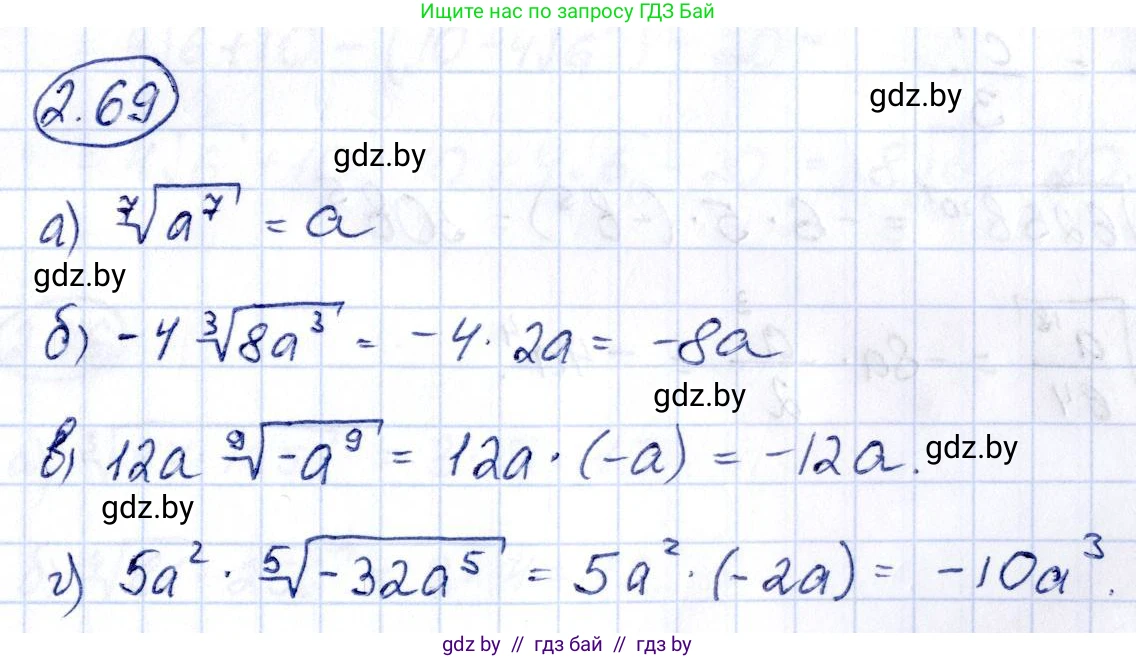 Ищите нас по запросу ГДЗ Бай
2.69
gdz.by
gdz.by
а) ⁷√a⁷ = a
gdz.by
б) -4 ³√8a³ = -4 · 2a = -8a
gdz.by
в) 12a ⁹√-a⁹ = 12a · (-a) = -12a.
gdz.by
gdz.by
г) 5a² · ⁵√-32a⁵ = 5a² · (-2a) = -10a³.
gdz by // гдз бай // гдз by